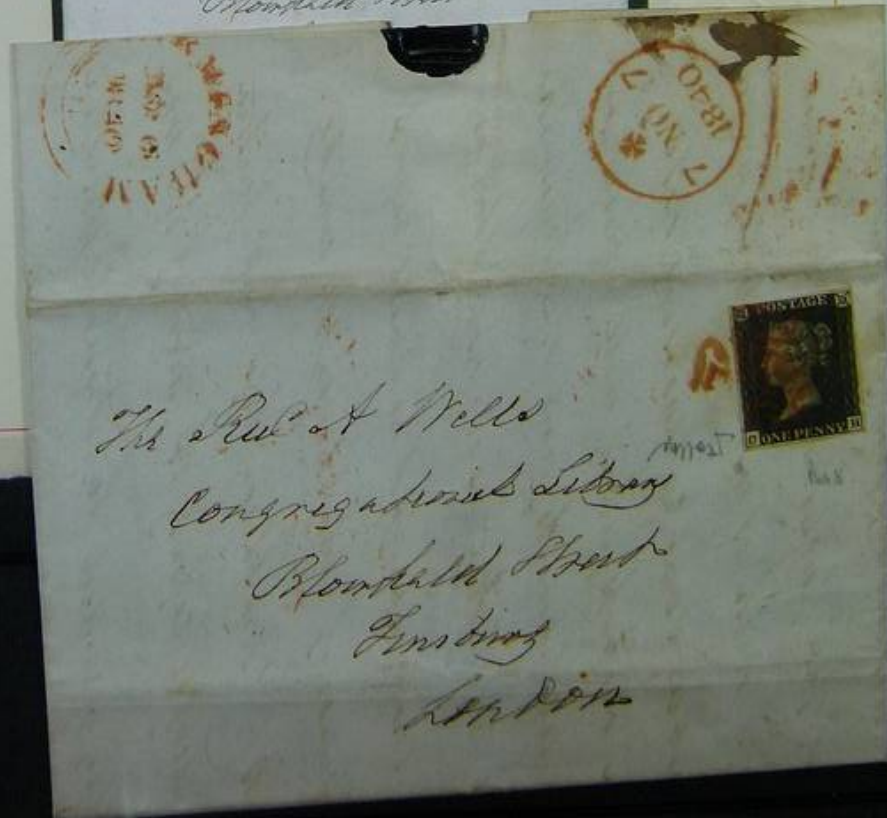 Blomfield Street
7 NO 7
1840
POSTAGE
O H
ONE PENNY
The Revd A Wells
Congregational Library
Blomfield Street
Finsbury
London